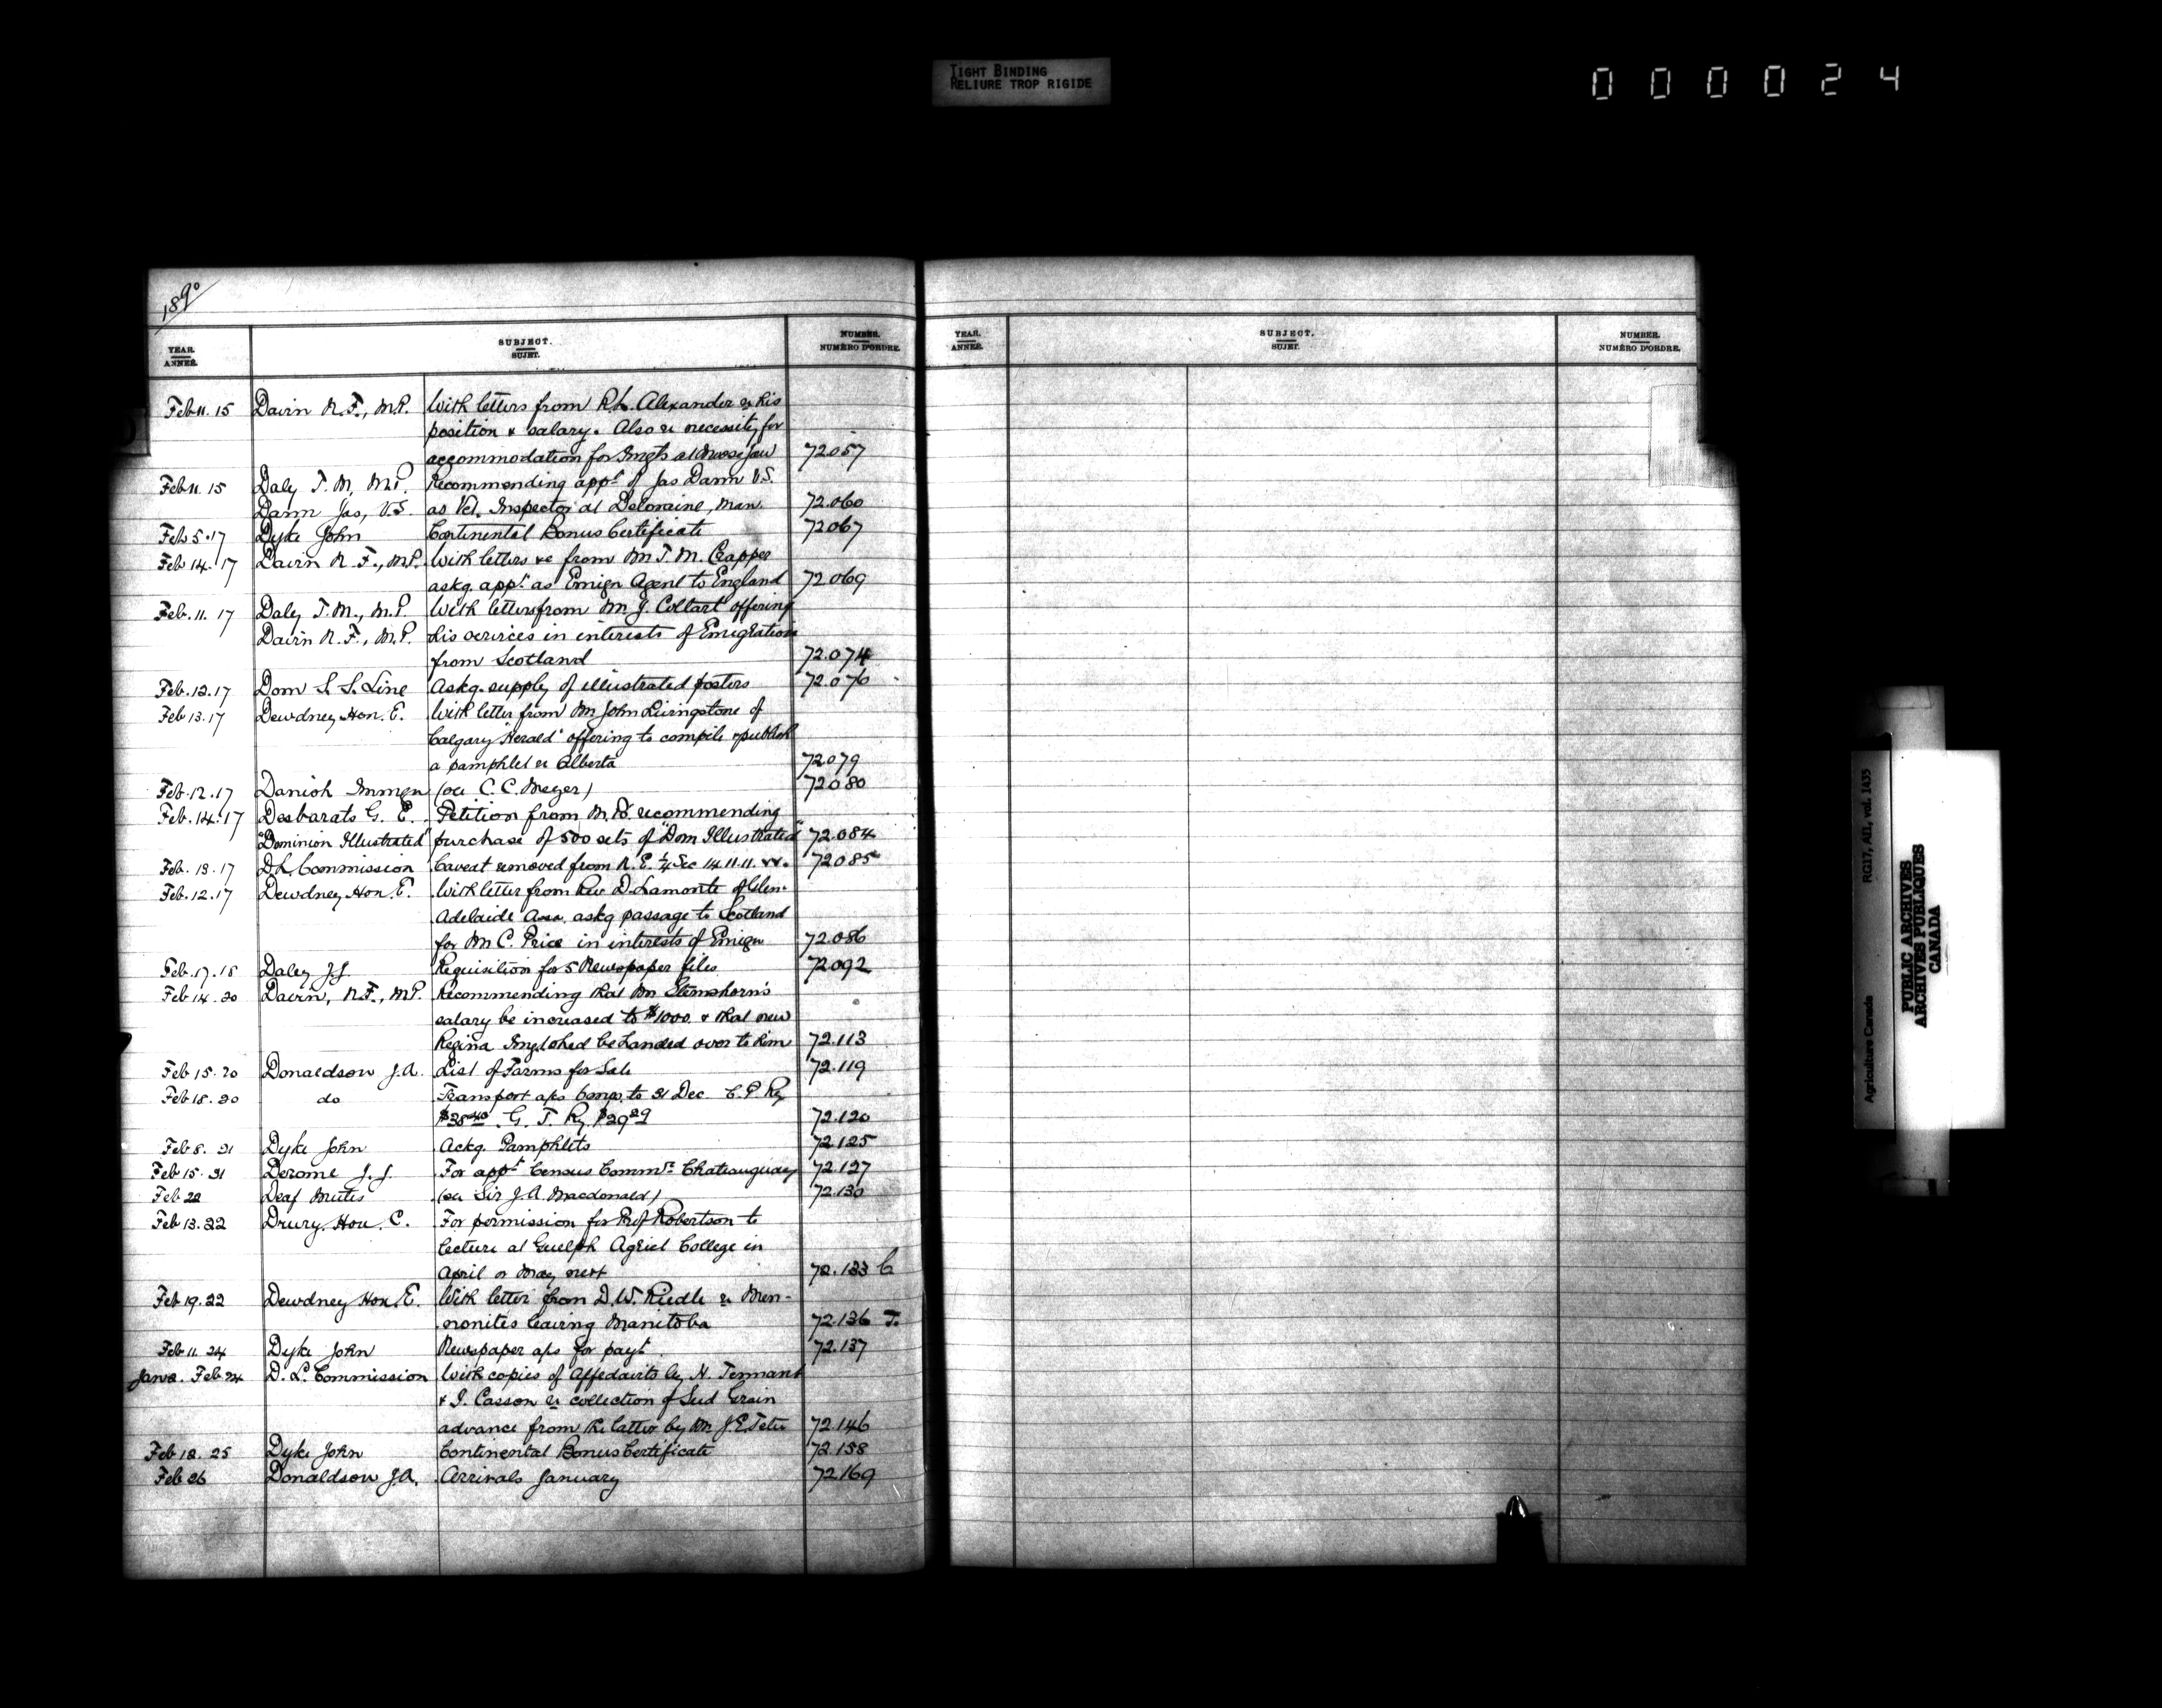 TIGHT BINDING
RELIURE TROP RIGIDE
000024
1890
YEAR. ANNÉE. SUBJECT. SUJET. NUMBER. NUMÉRO D'ORDRE.
YEAR. ANNÉE. SUBJECT. SUJET. NUMBER. NUMÉRO D'ORDRE.
Feb 11. 15 Davin N. F., M.P. With letters from R.L. Alexander re his
position & salary. Also re necessity for
accommodation for Imgts at Moose Jaw 72.057
Feb 11. 15 Daly T. M, M.P. Recommending appt of Jas Dann V.S.
Dann Jas, V.S. as Vet. Inspector at Deloraine, Man. 72.060
Feb 5. 17 Dyke John Continental Bonus Certificate 72067
Feb 14. 17 Davin N. F., M.P. With letters &c from Mr T. M. Crapper
askg. appt. as Emign Agent to England 72069
Feb. 11. 17 Daly T. M., M.P. With letters from Mr J. Coltart offering
Davin N. F., M.P. his services in interests of Emigration
from Scotland 72.074
Feb. 12. 17 Dom S. S. Line Askg. supply of illustrated posters 72.076
Feb 13. 17 Dewdney Hon. E. With letter from Mr. John Livingstone of
Calgary "Herald" offering to compile & publish
a pamphlet re Alberta 72079
Feb. 12. 17 Danish Immgn (see C. C. Meyer) 72080
Feb. 14. 17 Desbarats G. E. Petition from M.Ps. recommending
"Dominion Illustrated" purchase of 500 sets of "Dom Illustrated" 72.084
Feb. 13. 17 D.L. Commission Caveat removed from N. E. 1/4 Sec 14. 11. 11. 72085
Feb. 12. 17 Dewdney Hon. E. With letter from Rev. D. Lamonte of Glen-
Adelaide Assa. askg passage to Scotland
for Mr C. Price in interests of Emign 72.086
Feb. 17. 18 Daley J.J. Requisition for 5 Newspaper files 72092
Feb 14. 20 Davin, N.F., M.P. Recommending that Mr Stemshorn's
salary be increased to $1000. & that new
Regina Img. shed be handed over to him 72.113
Feb 15. 20 Donaldson J.A. List of Farms for Sale 72.119
Feb 18. 20 do Transport a/cs Comp. to 31 Dec. C. P. Ry
$38.40 G. T. Ry. $29.29 72.120
Feb 8. 21 Dyke John Ackg. Pamphlets 72.125
Feb 15. 21 Derome J. J. For appt Census Commr. Chateauguay 72.127
Feb 22 Deaf Mutes (see Sir J. A. Macdonald) 72.130
Feb 13. 22 Drury. Hon. C. For permission for Prof Robertson to
lecture at Guelph Agricl College in
April or May next 72.133 C
Feb 19. 22 Dewdney Hon. E. With letter from D. W. Riedle re Men-
nonites leaving Manitoba 72.136 T.
Feb 11. 24 Dyke John Newspaper a/cs for payt. 72.137
Feb 24 D. L. Commission With copies of Affedavits by H. Tennant
& J. Casson re collection of Seed Grain
advance from the latter by Mr J. E. Tetu 72.146
Feb 12. 25 Dyke John Continental Bonus Certificate 72.158
Feb 26 Donaldson J.A. Arrivals January 72169
Agriculture Canada RG17, AII, vol. 1435
PUBLIC ARCHIVES
ARCHIVES PUBLIQUES
CANADA